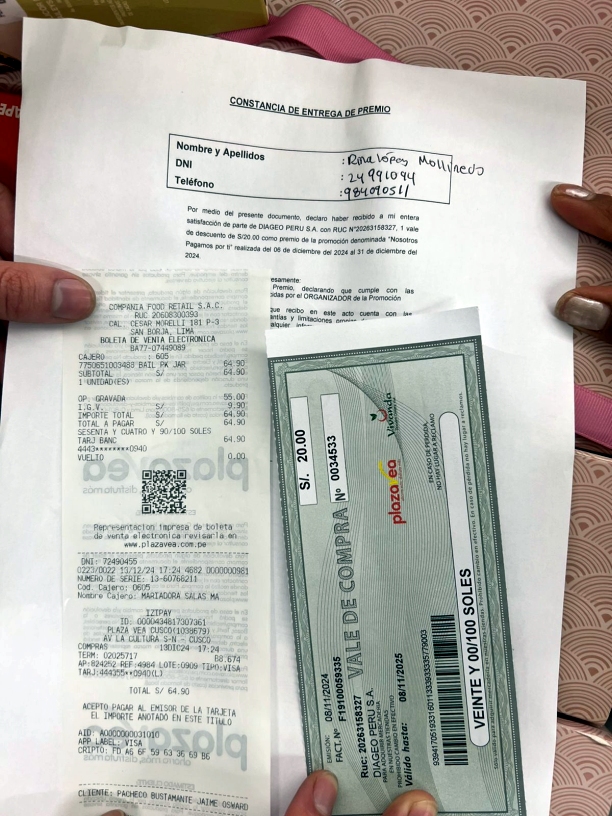 CONSTANCIA DE ENTREGA DE PREMIO
Nombre y Apellidos : Rina López Mollinedo
DNI : 24991094
Teléfono : 984090511
Por medio del presente documento, declaro haber recibido a mi entera
satisfacción de parte de DIAGEO PERU S.A. con RUC N°20263158327, 1 vale
de descuento de S/20.00 como premio de la promoción denominada "Nosotros
Pagamos por ti" realizada del 06 de diciembre del 2024 al 31 de diciembre del
2024.
esamente:
Premio, declarando que cumple con las
das por el ORGANIZADOR de la Promoción
que recibo en este acto cuenta con las
antías y limitaciones
alquier
COMPANIA FOOD RETAIL S.A.C.
RUC 20608300393
CAL. CESAR MORELLI 181 P-3
SAN BORJA, LIMA
BOLETA DE VENTA ELECTRONICA
BA77-07449089
CAJERO : 605
7750651003488 BAIL PK JAR 64.90
SUBTOTAL S/ 64.90
1 UNIDAD(ES)
OP. GRAVADA 55.00
I.G.V. S/ 9.90
IMPORTE TOTAL S/ 64.90
TOTAL A PAGAR S/ 64.90
SESENTA Y CUATRO Y 90/100 SOLES
TARJ BANC 64.90
4443********0940
VUELTO 0.00
Representacion impresa de boleta
de venta electronica revisarla en
www.plazavea.com.pe
DNI: 72490455
0223/0022 13/12/24 17:24 4682 0000000981
NUMERO DE SERIE: 13-60766211
Cod. Cajero: 0605
Nombre Cajero: MARIADORA SALAS MA
IZIPAY
ID: 0000434817307361
PLAZA VEA CUSCO(1038679)
AV LA CULTURA S-N - CUSCO
COMPRAS 13DIC24 17:24
TERM: 02025717 B8.674
AP:824252 REF:4984 LOTE:0909 TIPO:VISA
TARJ:444355**0940(L)
TOTAL S/ 64.90
ACEPTO PAGAR AL EMISOR DE LA TARJETA
EL IMPORTE ANOTADO EN ESTE TITULO
AID: A0000000031010
APP LABEL: VISA
CRIPTO: FD A6 6F 59 63 36 69 B6
CLIENTE: PACHECO BUSTAMANTE JAIME OSWARD
S/. 20.00
Nº 0034533
VALE DE COMPRA
plazavea
Vivanda
EN CASO DE PÉRDIDA,
NO HAY LUGAR A RECLAMO
EMISIÓN: 08/11/2024
FACT. Nº F19100059335
Ruc: 20263158327
DIAGEO PERU S.A.
PARA ADQUIRIR MERCADERÍA
EN NUESTRAS TIENDAS
PROHIBIDO CAMBIO EN EFECTIVO
Válido hasta: 08/11/2025
VEINTE Y 00/100 SOLES